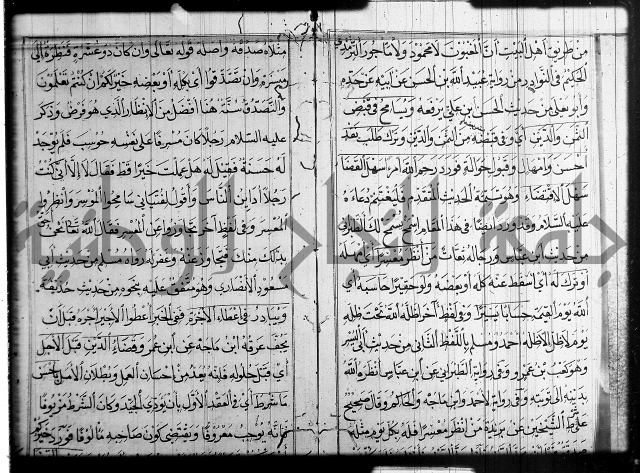 من طريق اهل البيت ان المغبون لا محمود ولا ماجور الترمذي
الحكيم في النوادر من رواية عبيد الله بن الحسن عن ابيه عن جده
وابو يعلى من حديث الحسن بن علي يرفعه ويسامح في قبض
الثمن والدين اي وفي قبضه من الثمن والدين وترك طلب نقد
احسن وامهال وقبول حوالة فورد رحم الله امرا سهل القضا
سهل الاقتضاء وهو تتمة الحديث المتقدم فليغتنم دعاءه
عليه السلام وقد ورد ايضا في هذا المقام اسمح يسمح لك الطبراني
من حديث ابن عباس ورجاله ثقات من انظر معسرا اي امهله
او ترك له اي اسقط عنه كله او بعضه ولو حقيرا حاسبه اي
الله يوم القيمة حسابا يسيرا وفي لفظ آخر اظله الله تحت ظله
يوم لا ظل الا ظله احمد ومسلم باللفظ الثاني من حديث ابي اليسر
وهو كعب بن عمرو وفي رواية الطبراني عن ابن عباس انظره الله
بذنبه الى توبته وفي رواية لاحمد وابن ماجه والحاكم وقال صحيح
على شرط الشيخين عن بريدة من انظر معسرا فله بكل يوم مثله
مثلاه صدقة واصله قوله تعالى وان كان ذو عسرة فنظرة الى
ميسرة وان تصدقوا اي بكله او بعضه خير لكم ان كنتم تعلمون
والتصدق سنة هنا افضل من الانظار الذي هو فرض وذكر
عليه السلام رجلا كان مسرفا على نفسه حوسب فلم يوجد
له حسنة فقيل له هل عملت خيرا قط فقال لا الا اني كنت
رجلا اداين الناس واقول لفتياني سامحوا الموسر وانظروا
المعسر وفي لفظ آخر تجاوزوا عن المعسر فقال الله تعالى نحن احق
بذلك منك فتجاوز عنه وغفر له رواه مسلم من حديث ابي
مسعود الانصاري وهو متفق عليه بنحوه من حديث حذيفة
ويبادر في اعطاء الاجرة ففي الخبر اعطوا الاجير اجره قبل ان
يجف عرقه ابن ماجه عن ابن عمر وقضاء الدين قبل الاجل
اي قبل حلوله فانه يعد من احسان العمل وبطلان الامل باحسن
ما شرط اي في العقد الاول بان يؤدي الجيد وكان الشرط مزيوفا
فانه يوجب معروفا ويقتضي كون صاحبه مألوفا فورد خيركم
جامعة النجاح الوطنية